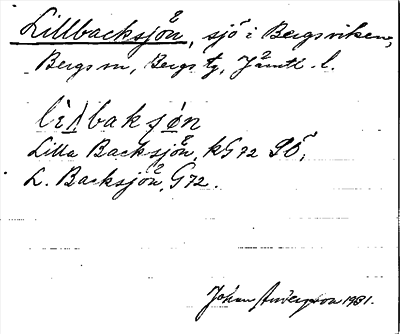 Lillbacksjön, sjö i Bergsviken,
Bergs sn, Bergs tg, Jämtl. l.
lìllbaksjøn
Lilla Backsjön, kG 72 SÖ,
L. Backsjön, G 72.
Johan 1931.